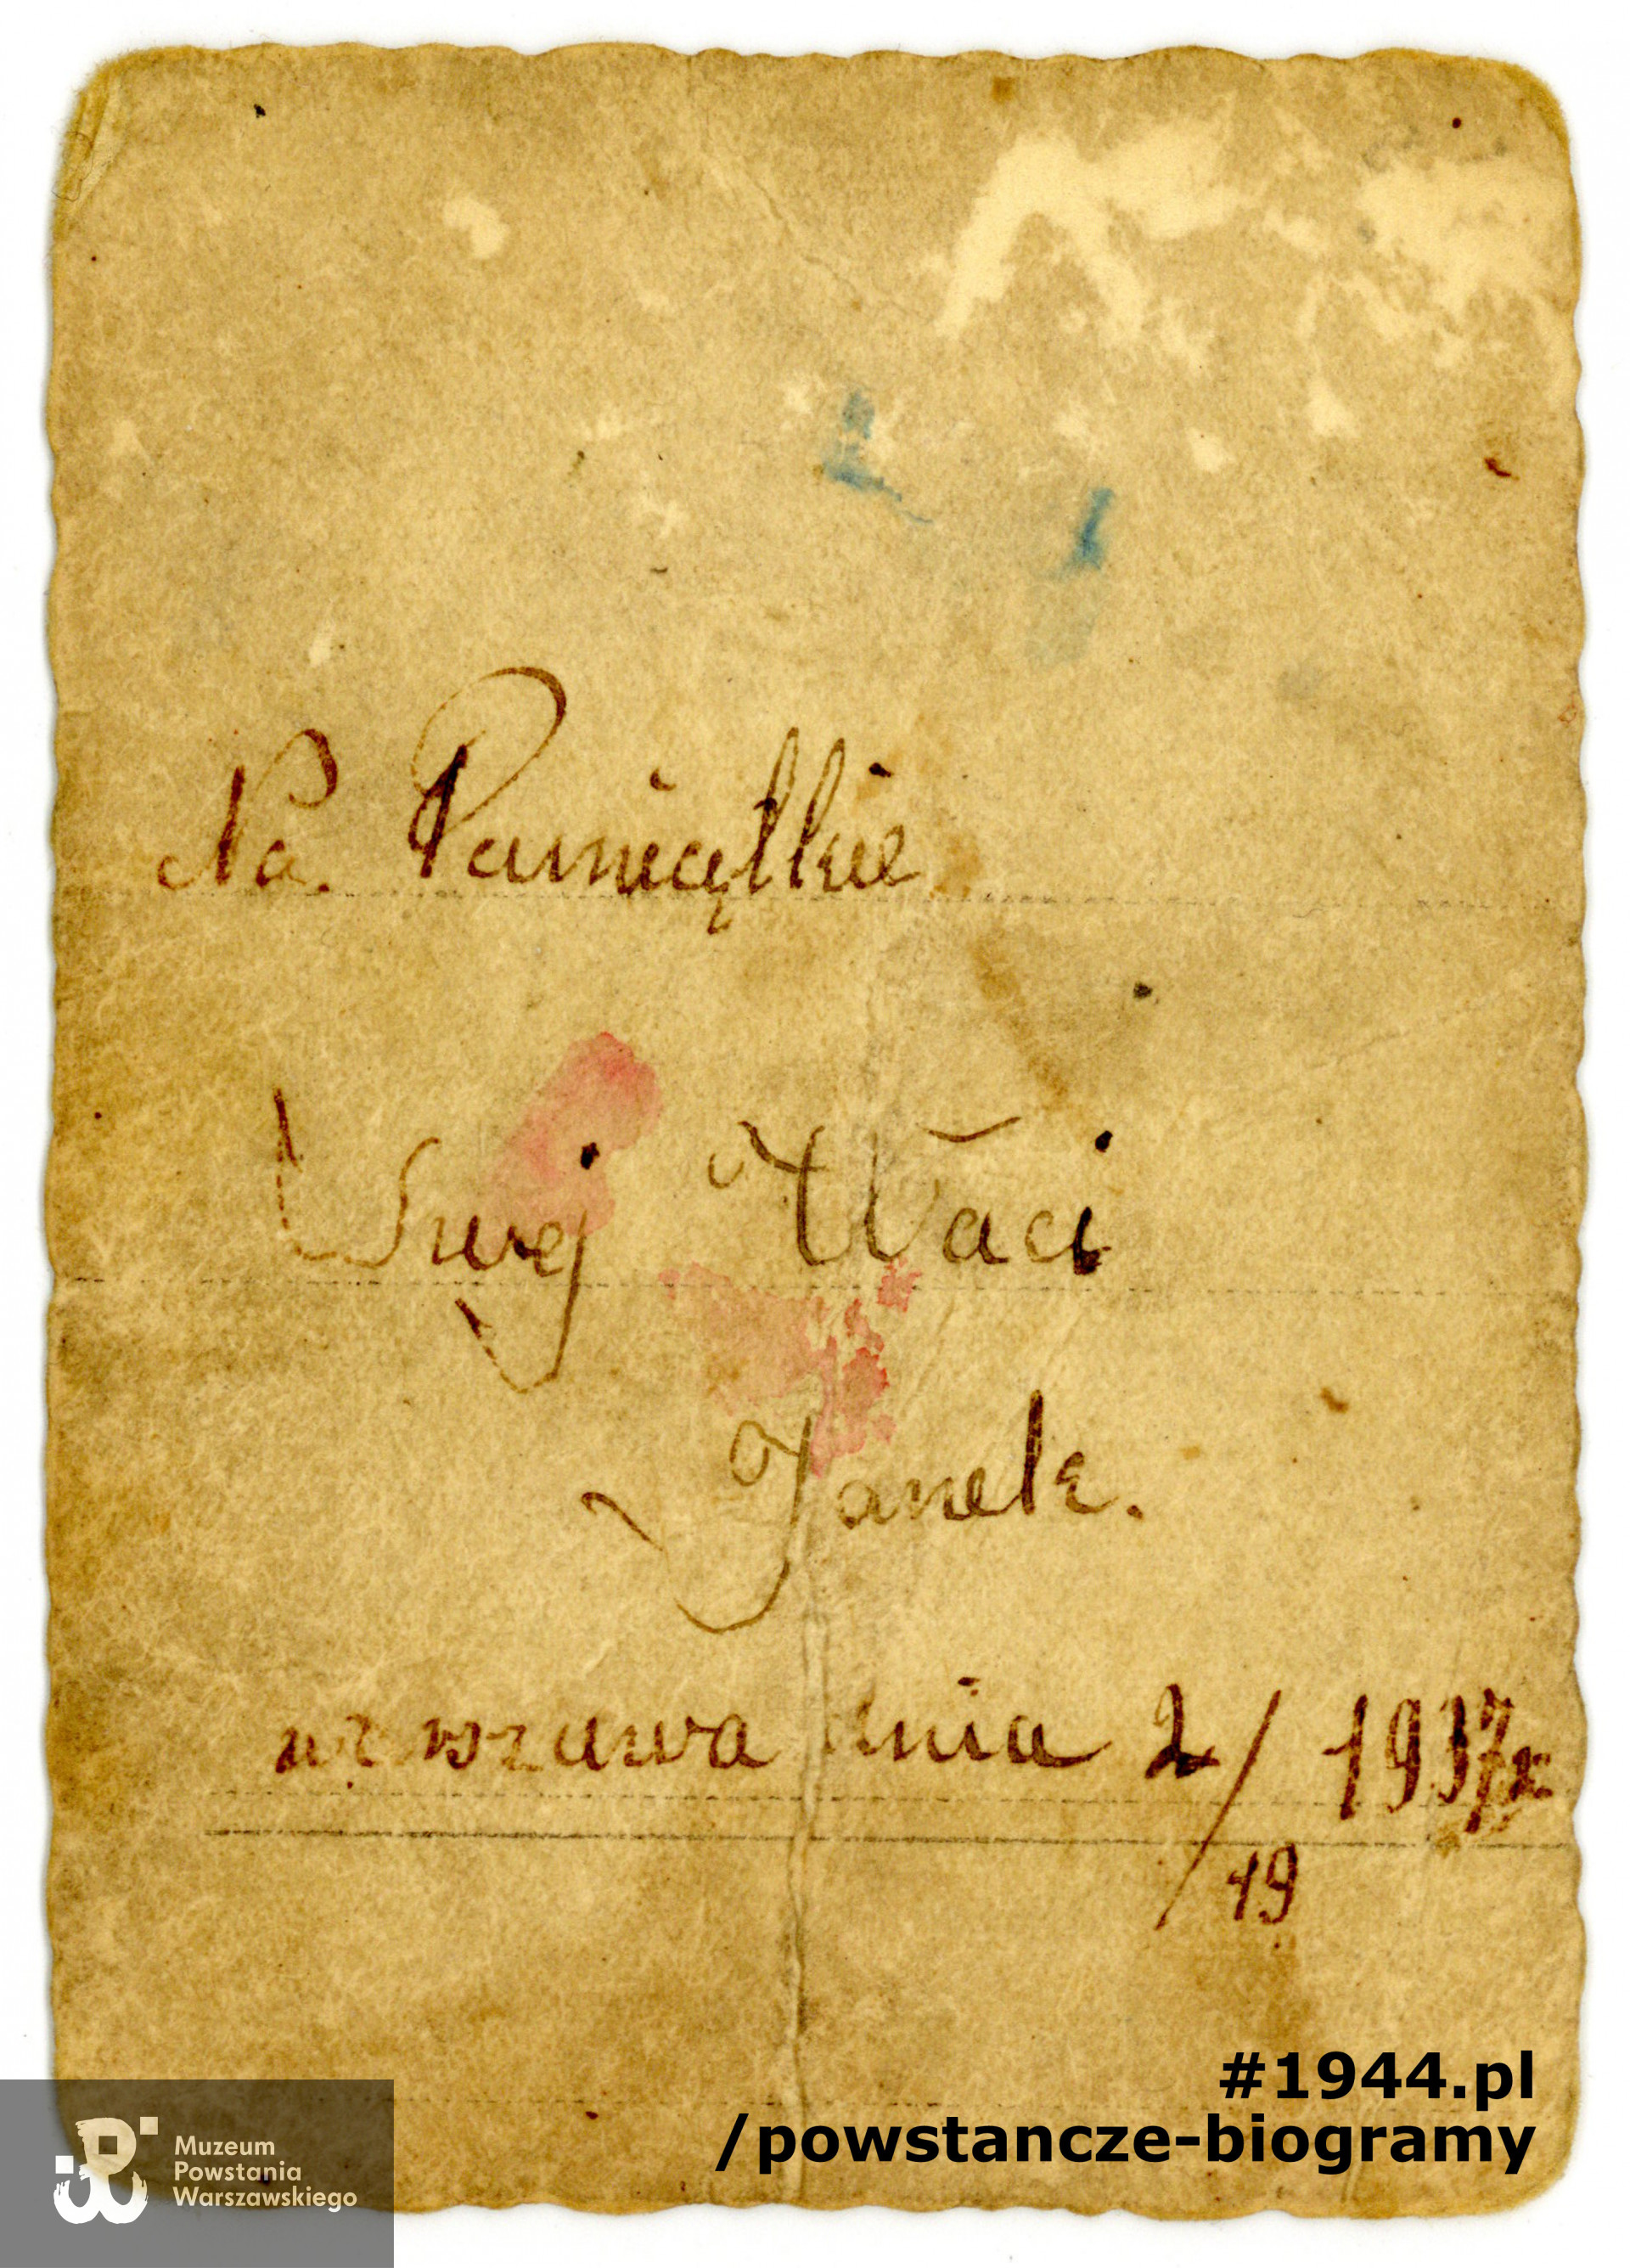 Na Pamiątkie
Swej Waci
Janek.
warszawa dnia 2/19 1937r
#1944.pl
/powstancze-biogramy
Muzeum
Powstania
Warszawskiego